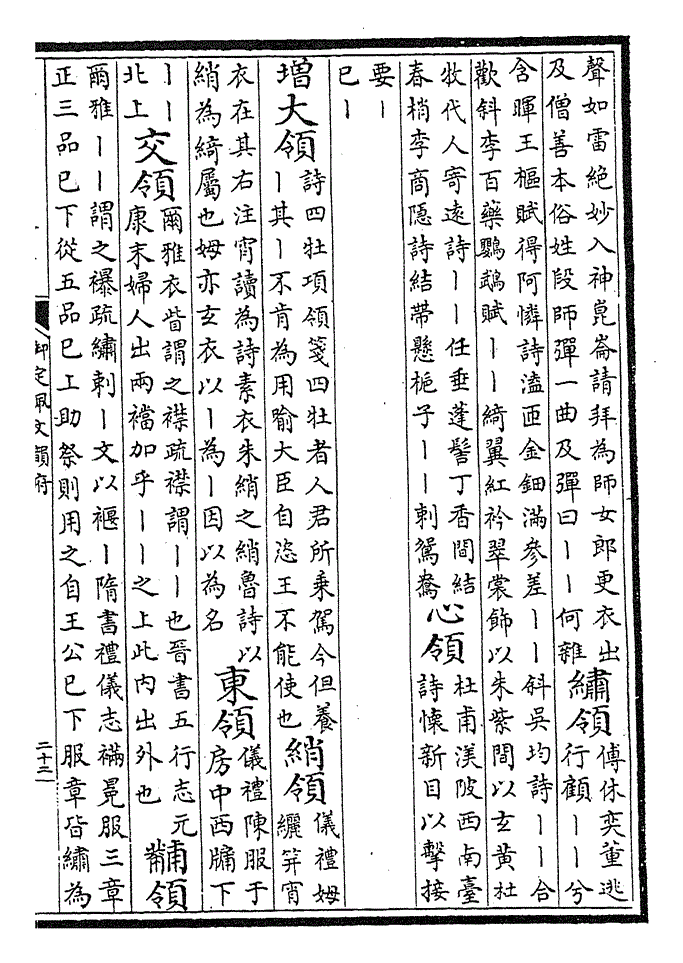 聲如雷絕妙入神崑崙請拜為師女郎更衣出
及僧善本俗姓段師彈一曲及彈曰丨丨何雜
繡領
傅休奕董逃
行顧丨丨兮
含暉王樞賦得阿憐詩溘匝金鈿滿參差丨丨斜吳均詩丨丨合
歡斜李百藥鸚鵡賦丨丨綺翼紅衿翠裳飾以朱紫間以玄黃杜
牧代人寄遠詩丨丨任垂蓬髻丁香間結
春梢李商隱詩結帶懸梔子丨丨刺鴛鴦
心領
杜甫渼陂西南臺
詩懷新目以擊接
要丨
已丨
增大領
詩四牡項領箋四牡者人君所乗駕今但養
丨其丨不肯為用喻大臣自恣王不能使也
綃領
儀禮姆
纚笄宵
衣在其右注宵讀為詩素衣朱綃之綃魯詩以
綃為綺屬也姆亦玄衣以丨為丨因以為名
東領
儀禮陳服于
房中西牖下
丨丨
北上
交領
爾雅衣眥謂之襟疏襟謂丨丨也晉書五行志元
康末婦人出兩襠加乎丨丨之上此内出外也
黼領
爾雅丨丨謂之襮疏繡刺丨文以褗丨隋書禮儀志襧冕服三章
正三品已下從五品已上助祭則用之自王公已下服章皆繡為
御定佩文韻府
二十二